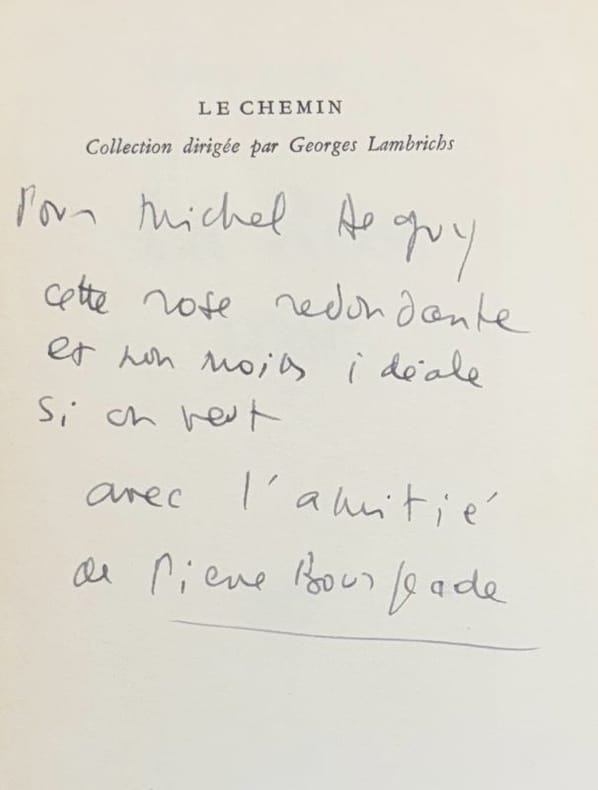 LE CHEMIN
Collection dirigée par Georges Lambrichs
Pour Michel Deguy
cette rose redondante
et non moins idéale
si on veut
avec l'amitié
de Pierre Bourgeade